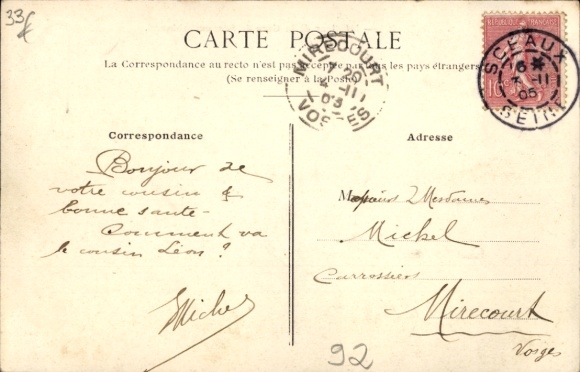 33
CARTE POSTALE
La Correspondance au recto n'est pas acceptée par tous les pays étrangers
(Se renseigner à la Poste)
REPUBLIQUE FRANÇAISE
10
SCEAUX
6
4 -11
05
SEINE
MIRECOURT
4 -11
05
VOSGES
Correspondance
Adresse
Bonjour de
votre cousin &
bonne santé -
Comment va
le cousin Léon ?
EMichel
Messieurs & Mesdames
Michel
Carrossiers
Mirecourt
Vosges
92